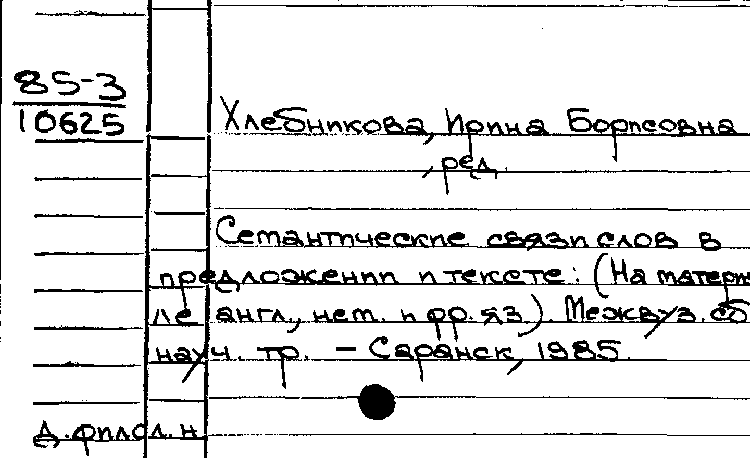 85-3
10625
Хлебникова, Ирина Борисовна
, ред.
Семантические связи слов в
предложении и тексте: (На матери
ле англ., нем. и фр. яз.). Межвуз. сб
науч. тр. - Саранск, 1985.
Д. филол. н